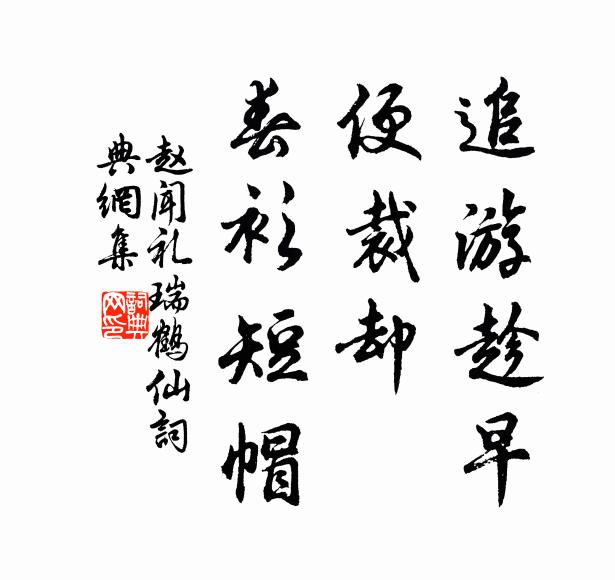 追游趁早
便裁却
春衫短帽
赵闻礼瑞鹤仙词
典網集
詞典网印